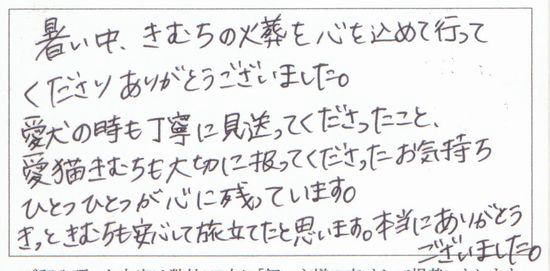 暑い中、きむちの火葬を心を込めて行って
くださりありがとうございました。
愛犬の時も丁寧に見送ってくださったこと、
愛猫きむちも大切に扱ってくださったお気持ち
ひとつひとつが心に残っています。
きっときむちも安心して旅立てたと思います。本当にありがとう
ございました。